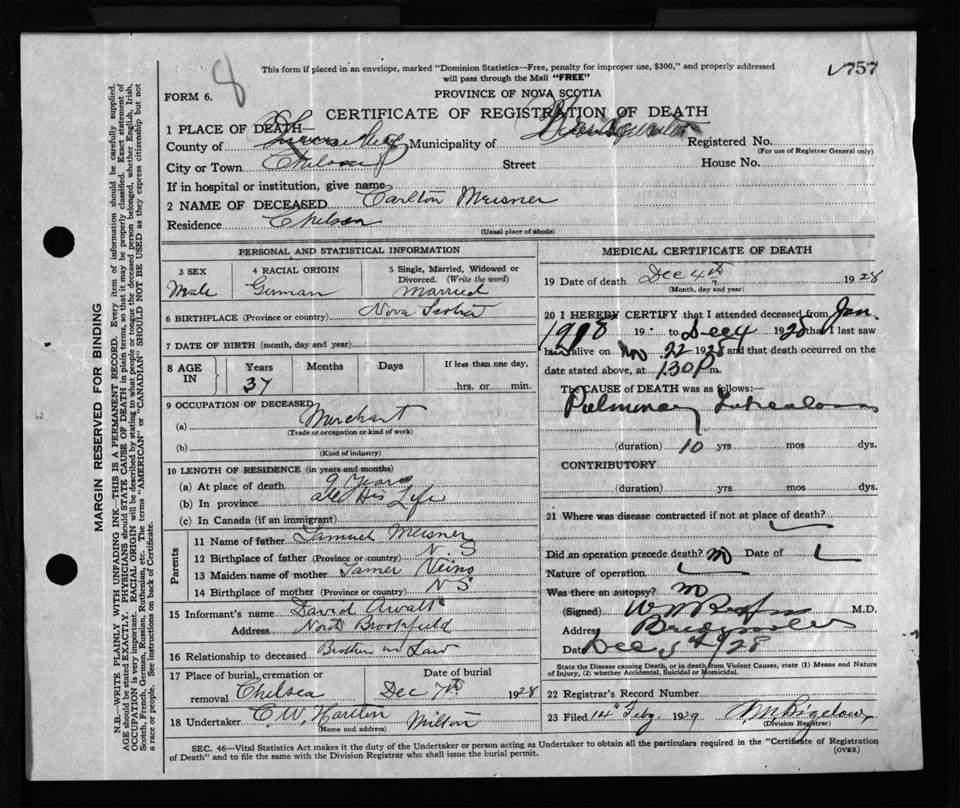 This form if placed in an envelope, marked "Dominion Statistics—Free, penalty for improper use, $300," and properly addressed
will pass through the Mail "FREE"
757
8
FORM 6.
PROVINCE OF NOVA SCOTIA
CERTIFICATE OF REGISTRATION OF DEATH
1 PLACE OF DEATH—
County of Municipality of Registered No.
(For use of Registrar General only)
City or Town Chelsea Street House No.
If in hospital or institution, give name
2 NAME OF DECEASED Carlton Meisner
Residence Chelsea
(Usual place of abode)
PERSONAL AND STATISTICAL INFORMATION
3 SEX
Male
4 RACIAL ORIGIN
German
5 Single, Married, Widowed or
Divorced. (Write the word)
Married
6 BIRTHPLACE (Province or country) Nova Scotia
7 DATE OF BIRTH (month, day and year)
8 AGE
IN
Years Months Days If less than one day,
37 hrs. or min.
9 OCCUPATION OF DECEASED
(a) Merchant
(Trade or occupation or kind of work)
(b)
(Kind of industry)
10 LENGTH OF RESIDENCE (in years and months)
(a) At place of death 9 Years
(b) In province all His Life
(c) In Canada (if an immigrant)
Parents
11 Name of father Samuel Meisner
12 Birthplace of father (Province or country) N.S
13 Maiden name of mother
14 Birthplace of mother (Province or country) N S
15 Informant's name David
Address North Brookfield
16 Relationship to deceased Brother in Law
17 Place of burial, cremation or
removal Chelsea
Date of burial
Dec 7th 1928
18 Undertaker C W Milton
(Name and address)
MEDICAL CERTIFICATE OF DEATH
19 Date of death Dec 4th 1928
(Month, day and year)
20 I HEREBY CERTIFY that I attended deceased from Jan.
19 to Dec 4 1928 that I last saw
h alive on Nov 22 1928 and that death occurred on
date stated above, at 1.30 P m.
The CAUSE OF DEATH was as follows:—
Pulmonary Tuberculosis
(duration) 10 yrs mos dys.
CONTRIBUTORY
(duration) yrs. mos. dys.
21 Where was disease contracted if not at place of death?
Did an operation precede death? no Date of
Nature of operation
Was there an autopsy? no
(Signed) M.D.
Address
Date Dec 5th 1928
State the Disease causing Death, or in death from Violent Causes, state (1) Means and Nature
of Injury, (2) whether Accidental, Suicidal or Homicidal.
22 Registrar's Record Number
23 Filed 14th Feby 1929 Bigelow
(Division Registrar)
SEC. 46—Vital Statistics Act makes it the duty of the Undertaker or person acting as Undertaker to obtain all the particulars required in the "Certificate of Registration
of Death" and to file the same with the Division Registrar who shall issue the burial permit.
(OVER)
MARGIN RESERVED FOR BINDING
N.B.—WRITE PLAINLY WITH UNFADING INK—THIS IS A PERMANENT RECORD. Every item of information should be carefully supplied.
AGE should be stated EXACTLY. PHYSICIANS should STATE CAUSE OF DEATH in plain terms, so that it may be properly classified. Exact statement of
OCCUPATION is very important. RACIAL ORIGIN will be described by stating to what people or tongue the deceased person belonged, whether English, Irish,
Scotch, French, German, Russian, Ruthenian, etc. The terms "AMERICAN" or "CANADIAN" SHOULD NOT BE USED as they express citizenship but not
a race or people. See instructions on back of Certificate.